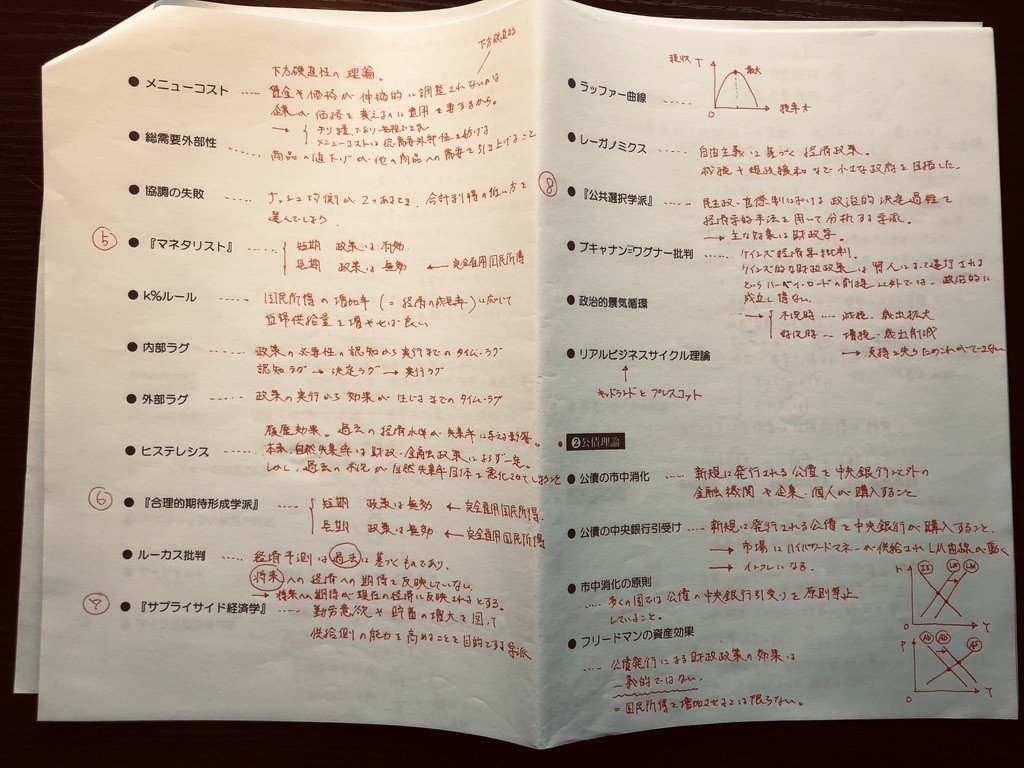 下方硬直的
● メニューコスト ‥‥‥ 下方硬直性の理論。
賃金や価格が伸縮的に調整されないのは
企業が価格を変えるのに費用を要するから。
メニューコストは総需要外部性を妨げる
● 総需要外部性
商品の値下げが他の商品への需要を引き上げること
● 協調の失敗 ナッシュ均衡が2つあるとき、合計利得の低い方を
選んでしまう
⑤ ● 『マネタリスト』 ‥‥ 短期 政策は有効
長期 政策は無効 ← 完全雇用国民所得
● k%ルール ‥‥‥ 国民所得の増加率(=経済の成長率)に応じて
貨幣供給量を増やせば良い
● 内部ラグ ‥‥‥ 政策の必要性の認知から実行までのタイム・ラグ
認知ラグ → 決定ラグ → 実行ラグ
● 外部ラグ ‥‥‥ 政策の実行から効果が生じるまでのタイム・ラグ
履歴効果。過去の経済水準が失業率に与える影響。
● ヒステレシス ‥‥‥ 本来、自然失業率は財政・金融政策によらず一定。
しかし、過去の不況が自然失業率自体を悪化させてしまうこと
⑥ ● 『合理的期待形成学派』 ‥‥ 短期 政策は無効 ← 完全雇用国民所得
長期 政策は無効 ← 完全雇用国民所得
● ルーカス批判 ‥‥ 経済予測は過去に基づくものであり、
将来への経済への期待を反映していない。
→ 将来への期待が現在の経済に反映されるとする。
⑦ ● 『サプライサイド経済学』 ‥‥ 勤労意欲や貯蓄の増大を図って
供給側の能力を高めることを目的とする学派
● ラッファー曲線 ‥‥‥ 税収 T 最大 0 税率
● レーガノミクス ‥‥ 自由主義に基づく経済政策。
減税や規制緩和などで小さな政府を目指した。
⑧ ● 『公共選択学派』 ‥‥ 民主政・官僚制における政治的決定過程を
経済学的手法を用いて分析する学派。
→ 主な対象は財政学。
● ブキャナン=ワグナー批判 ‥‥ ケインズ経済学批判。
ケインズ的な財政政策は賢人によって運行される
というハーベイ・ロードの前提以外では、政治的に
成立し得ない。
● 政治的景気循環 ‥‥ → 不況時 ‥‥ 減税、歳出拡大
好況時 ‥‥ 増税・歳出削減
→ 支持を失うためこれができない
● リアルビジネスサイクル理論
↑
キッドランドとプレスコット
❷公債理論
● 公債の市中消化 ‥‥ 新規に発行される公債を中央銀行以外の
金融機関や企業・個人が購入すること
● 公債の中央銀行引受け ‥‥ 新規に発行される公債を中央銀行が購入すること。
→ 市場にハイパワードマネーが供給されLM曲線が動く
→ インフレになる。
● 市中消化の原則
‥‥ 多くの国では公債の中央銀行引受けを原則禁止
していること。
IS LM LM 0 Y
● フリードマンの資産効果
‥‥ 公債発行による財政政策の効果は
一義的ではない。
= 国民所得を増加させるとは限らない。
P AD AD AS 0 Y